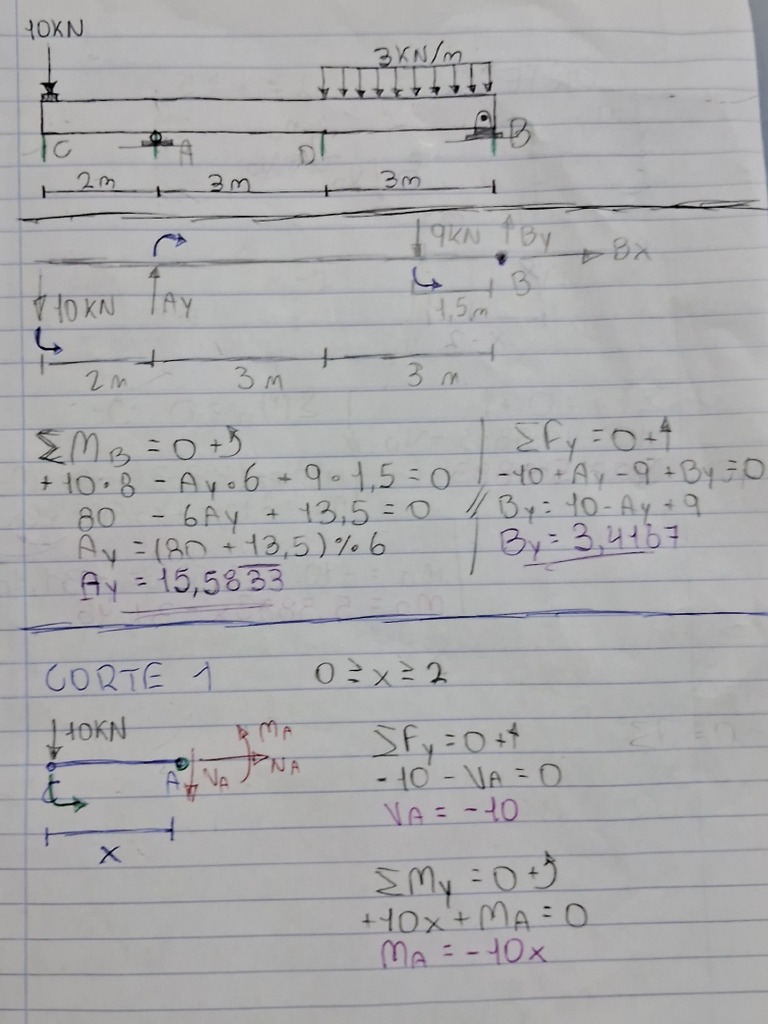 10KN
3KN/m
C A D B
2m 3m 3m
9KN By Bx
10KN Ay B
1,5m
2m 3m 3m
ΣM_B = 0 +↺
+10·8 - Ay·6 + 9·1,5 = 0
80 - 6Ay + 13,5 = 0
Ay = (80 + 13,5) % 6
Ay = 15,5833
ΣFy = 0 +↑
-10 + Ay - 9 + By = 0
// By = 10 - Ay + 9
By = 3,4167
CORTE 1 0 ≥ x ≥ 2
10KN M_A
A V_A N_A
x
ΣFy = 0 +↑
-10 - V_A = 0
V_A = -10
ΣMy = 0 +↺
+10x + M_A = 0
M_A = -10x